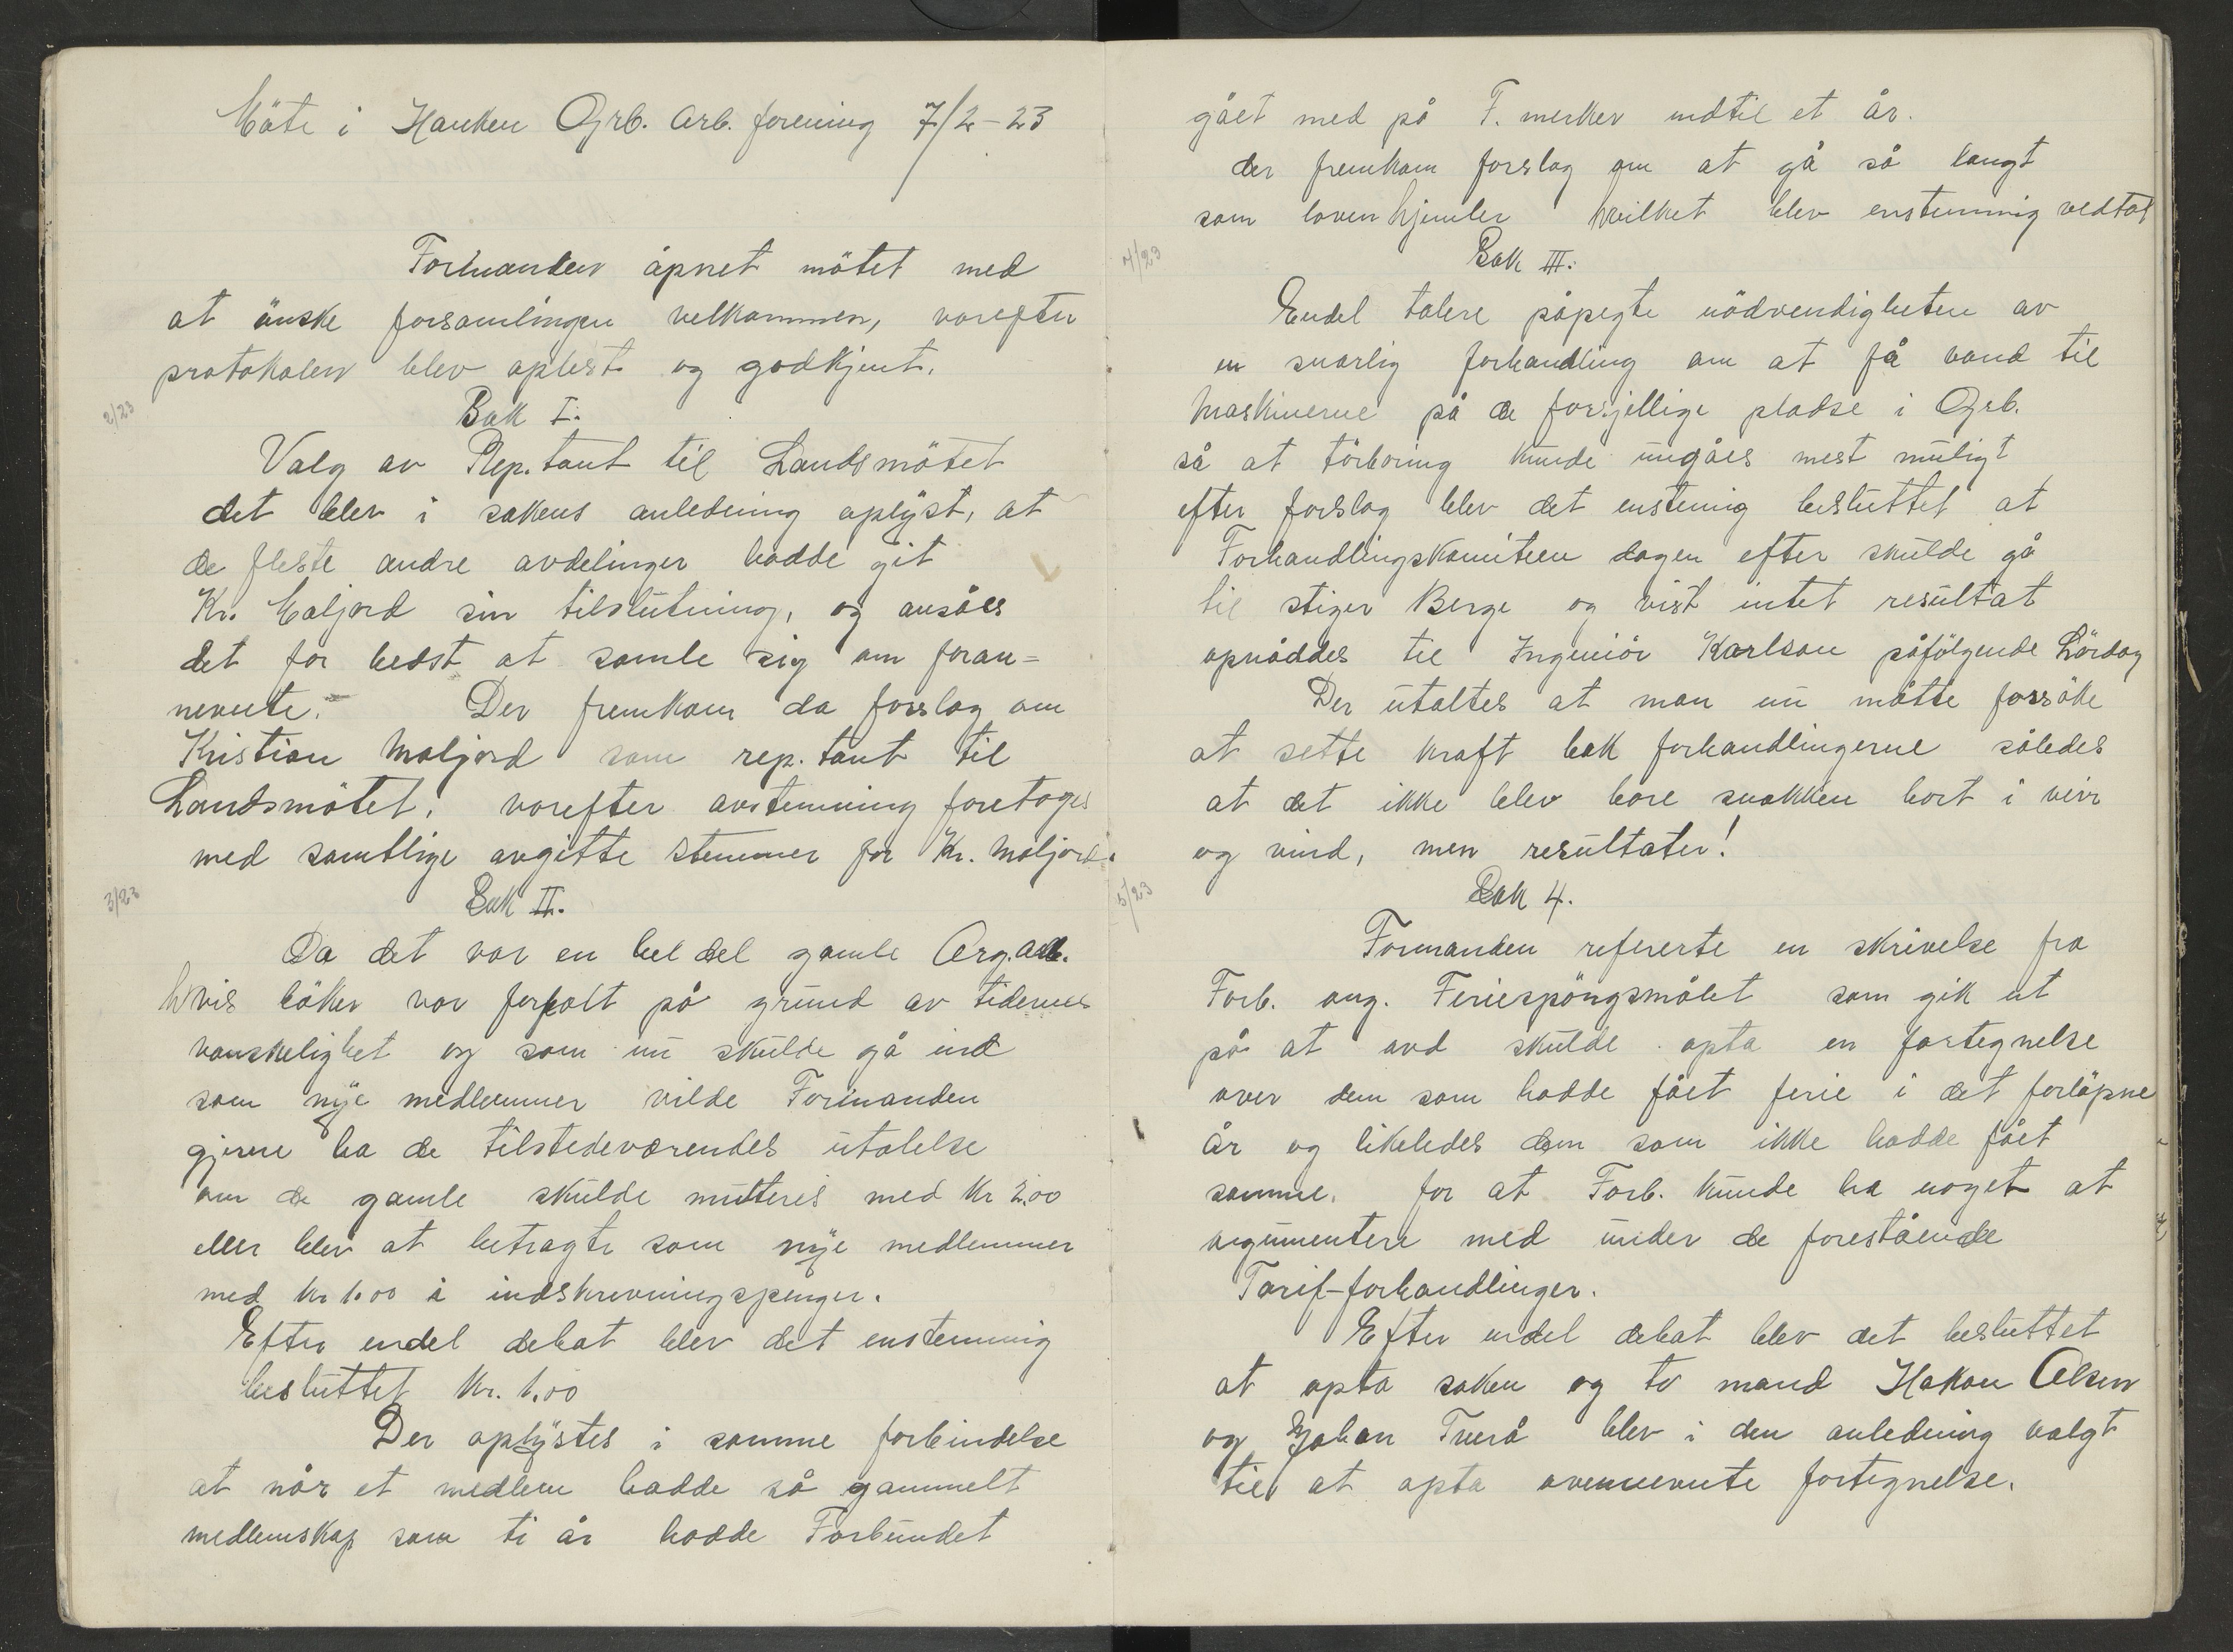 Möte i Hanken Grb. Arb. forening 7/2-23
Formanden åpnet mötet med
at önske forsamlingen velkommen, vorefter
protokolen blev oplest og godkjent.
2/23
Sak I.
Valg av Rep.tant til Landsmötet
det blev i sakens anledning oplyst, at
de fleste andre avdelinger hadde git
Kr. Maljord sin tilslutning, og ansåes
det for bedst at samle sig om foran=
nevnte. Der fremkom da forslag om
Kristian Maljord som rep.tant til
Landsmötet, vorefter avstemning foretoges
med samtlige avgitte stemmer for Kr. Maljord.
3/23
Sak II.
Da det var en hel del gamle Org. arb.
hvis böker var forfalt på grund av tidernes
vanskelighet og som nu skulde gå ind
som nye medlemmer vilde Formanden
gjerne ha de tilstedeværendes utalelse
om de gamle skulde multeres med Kr 2.00
eller blev at betragte som nye medlemmer
med Kr 1.00 i indskrevningspenger.
Efter endel debat blev det enstemmig
besluttet Kr. 1.00
Der oplystes i samme forbindelse
at når et medlem hadde så gammelt
medlemskap som ti år hadde Forbundet
gået med på F. merker indtil et år.
der fremkom forslag om at gå så langt
som loven hjemler hvilket blev enstemmig vedtat
4/23
Sak III.
Endel talere påpegte nödvendigheten av
en snarlig forhandling om at få vand til
Maskinerne på de forsjellige pladse i Grb.
så at törboring kunde ungåes mest muligt
efter forslag blev det enstemig besluttet at
Forhandlingskomiteen dagen efter skulde gå
til stiger Berge og vist intet resultat
opnåddes til Ingeniör Karlson påfölgende Lördag
Der utaltes at man nu måtte forsöke
at sette kraft bak forhandlingerne således
at det ikke blev bare snakken bort i veir
og vind, men resultater!
5/23
Sak 4.
Formanden refererte en skrivelse fra
Forb. ang. Feriespöngsmålet som gik ut
på at avd skulde opta en fortegnelse
over dem som hadde fået ferie i det forlöpne
år og likeledes dem som ikke hadde fået
samme. for at Forb. kunde ha noget at
argumentere med under de forestående
Tarif-forhandlinger.
Efter endel debat blev det besluttet
at opta saken og to mand Hakon Olsen
og Johan Tverå blev i den anledning valgt
til at opta ovennevnte fortegnelse.